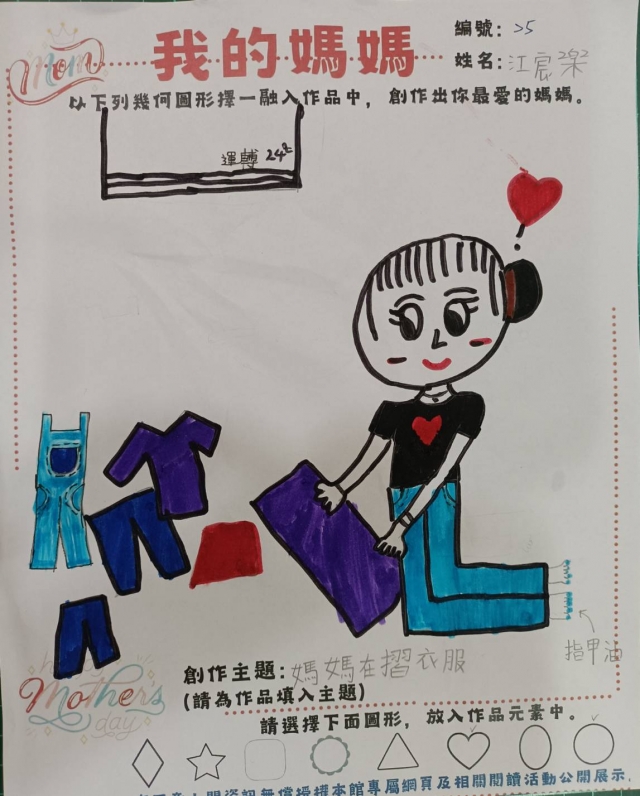 Mom
我的媽媽
編號: 25
姓名: 江宸
以下列幾何圖形擇一融入作品中，創作出你最愛的媽媽。
運轉 24℃
指甲油
創作主題: 媽媽在摺衣服
(請為作品填入主題)
Mothers
day
請選擇下面圖形，放入作品元素中。
開資訊無償授權本館專屬網頁及相關閱讀活動公開展示,